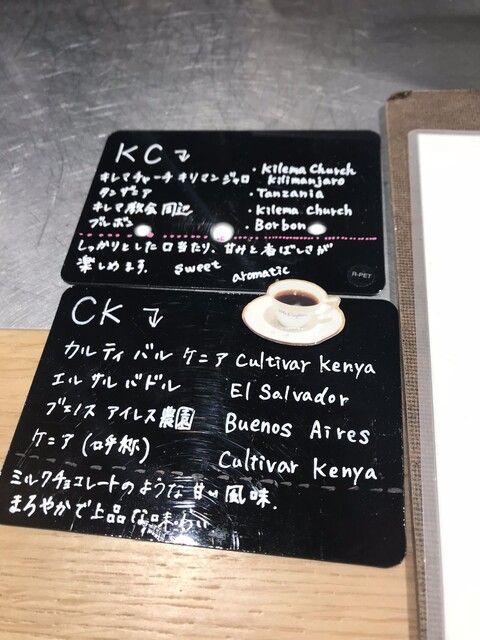 KC
キレマチャーチ キリマンジャロ ・Kilema Church Kilimanjaro
タンザニア ・Tanzania
キレマ教会周辺 ・Kilema church
ブルボン ・Borbon
しっかりとした口当たり、甘みと香ばしさが
楽しめます。 sweet aromatic
R-PET
CK
カルティバル ケニア Cultivar Kenya
エルサルバドル El Salvador
ブエノスアイレス農園 Buenos Aires
ケニア(呼称) Cultivar Kenya
ミルクチョコレートのような甘い風味.
まろやかで上品な味わい